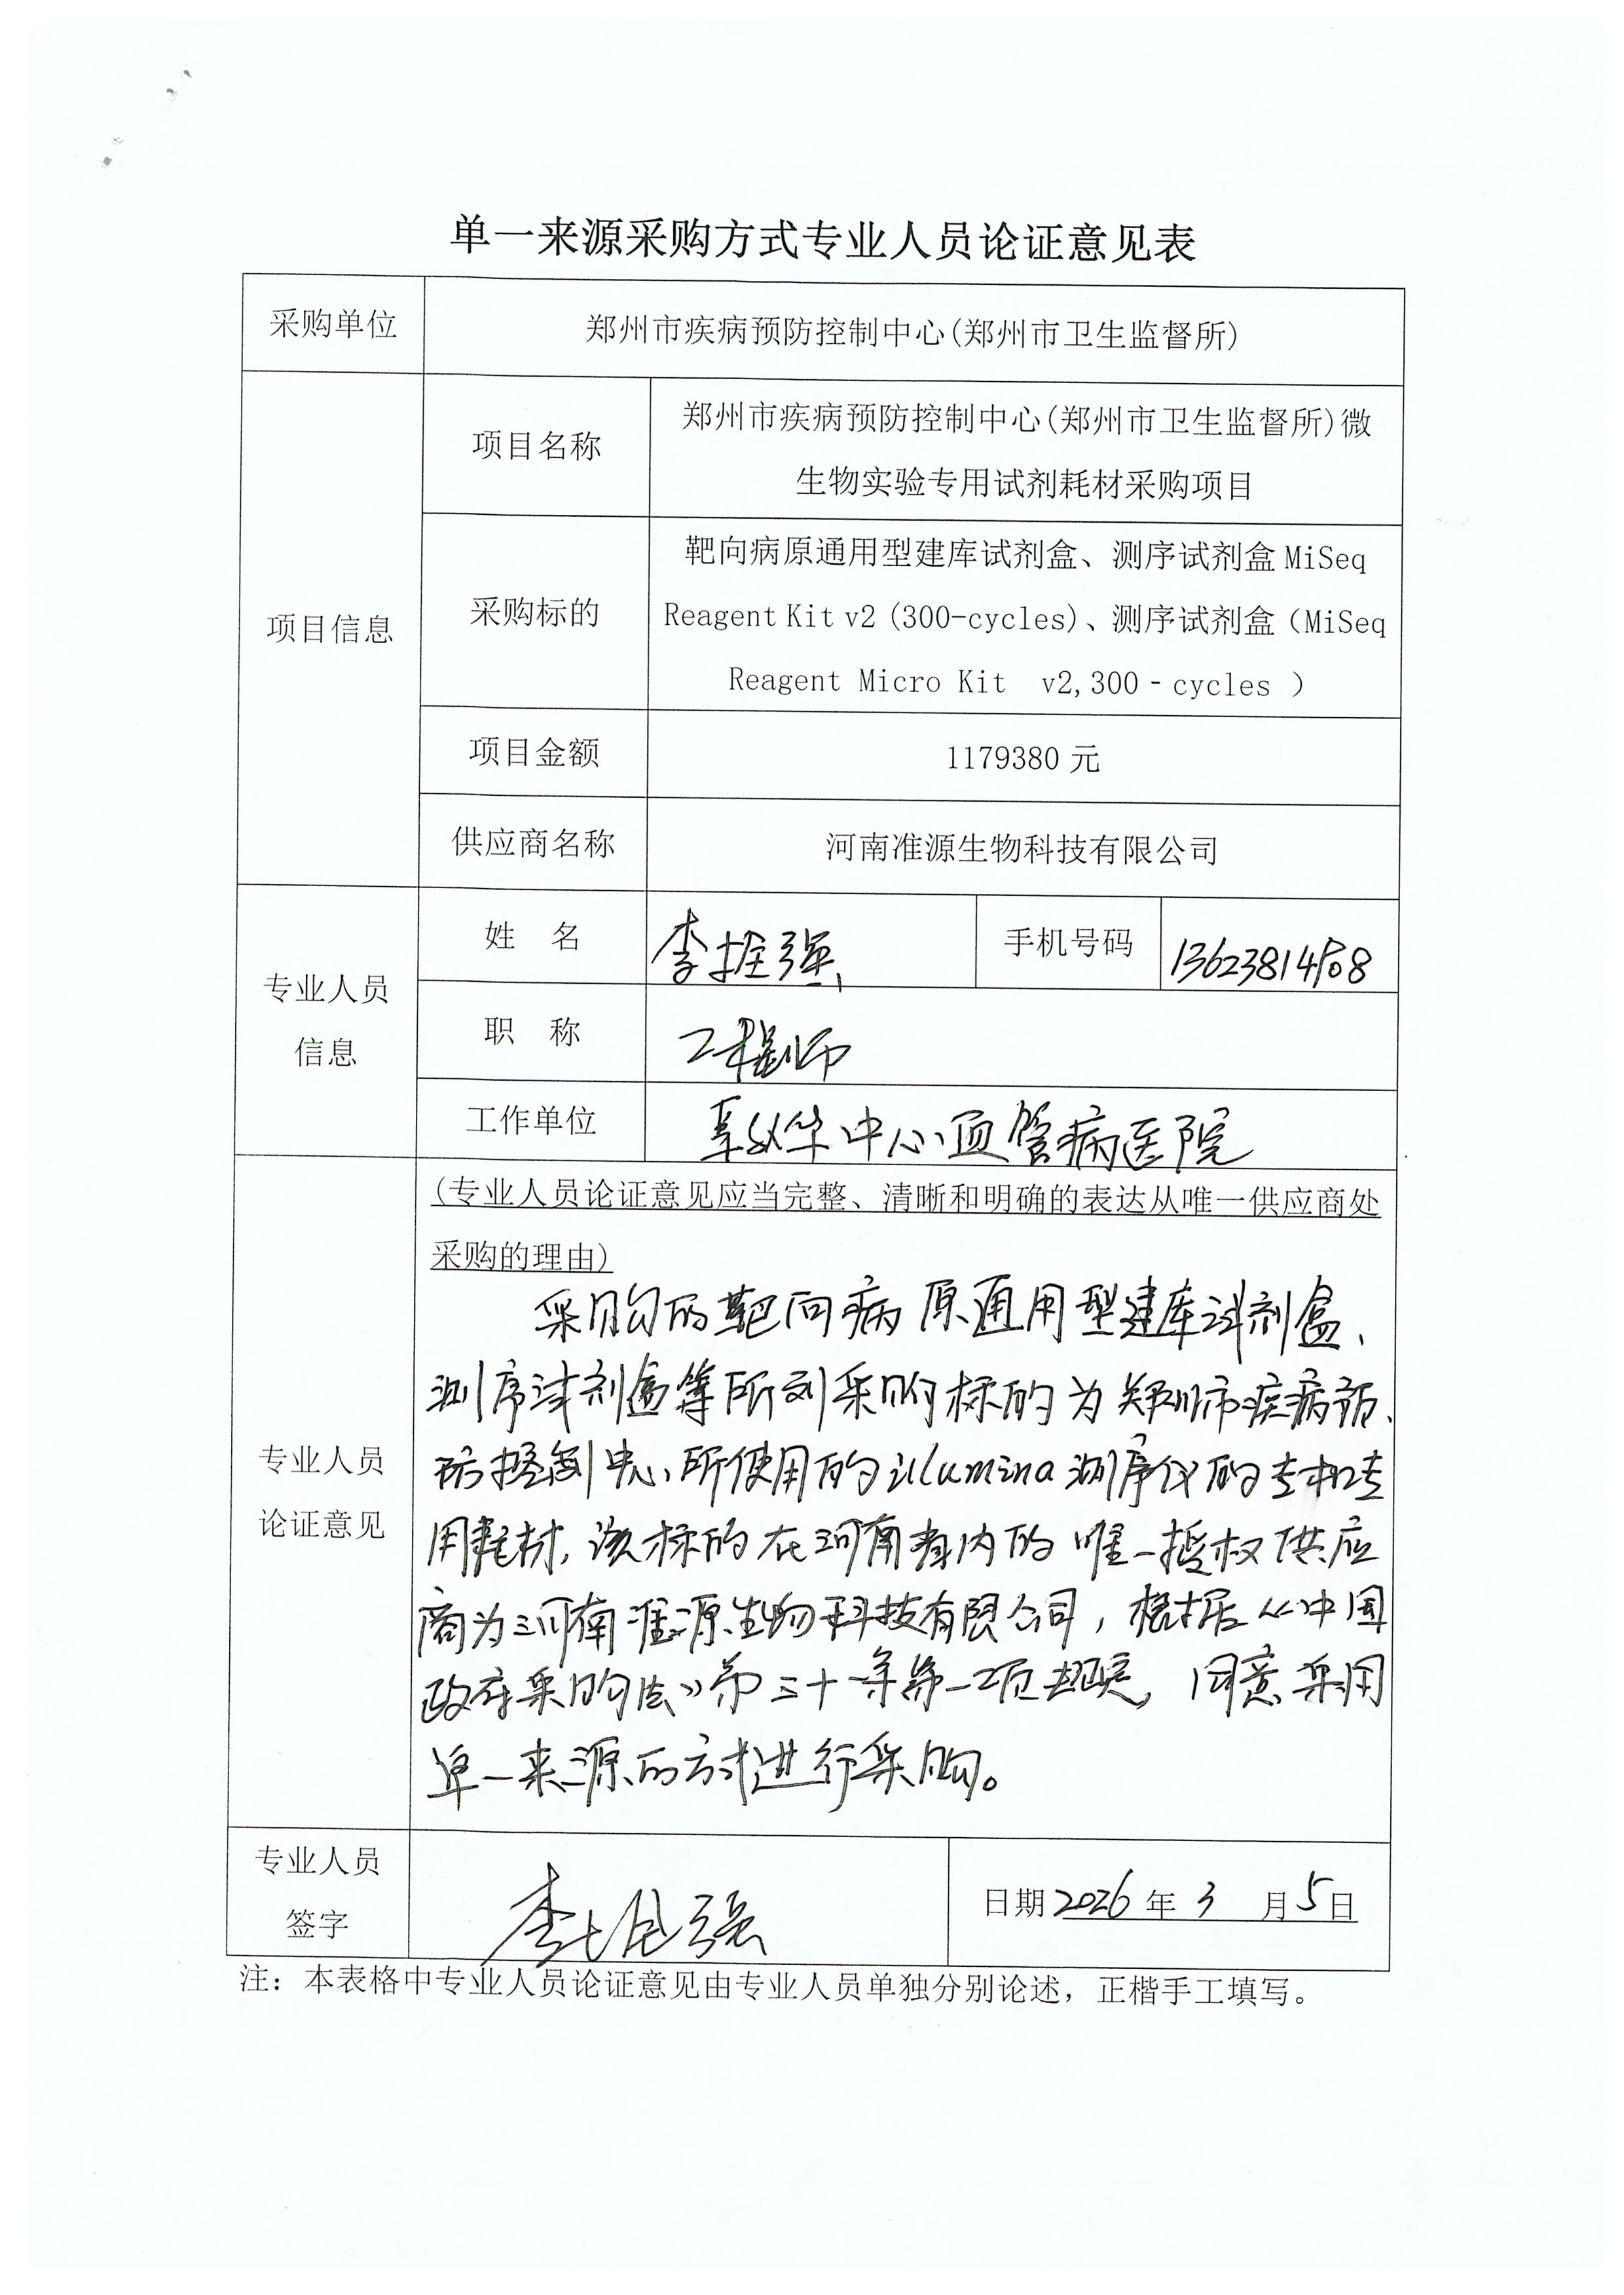 单一来源采购方式专业人员论证意见表
采购单位
郑州市疾病预防控制中心(郑州市卫生监督所)
项目信息
项目名称
郑州市疾病预防控制中心(郑州市卫生监督所)微
生物实验专用试剂耗材采购项目
采购标的
靶向病原通用型建库试剂盒、测序试剂盒 MiSeq
Reagent Kit v2 (300-cycles)、测序试剂盒（MiSeq
Reagent Micro Kit v2,300‐cycles ）
项目金额
1179380 元
供应商名称
河南准源生物科技有限公司
专业人员
信息
姓 名
李 强
手机号码
职 称
工程师
工作单位
华中心血管病医院
专业人员
论证意见
(专业人员论证意见应当完整、清晰和明确的表达从唯一供应商处
采购的理由)
采购的靶向病原通用型建库试剂盒、
测序试剂盒等所列采购标的为郑州市疾病预
防控制中心所使用的illumina测序仪的专机专
用耗材,该标的在河南省内的唯一授权供应
商为河南准源生物科技有限公司，根据《中国
政府采购法》第三十一条第一项规定，同意采用
单一来源的方式进行采购。
专业人员
签字
李 强
日期 2026 年 3 月 5 日
注：本表格中专业人员论证意见由专业人员单独分别论述，正楷手工填写。